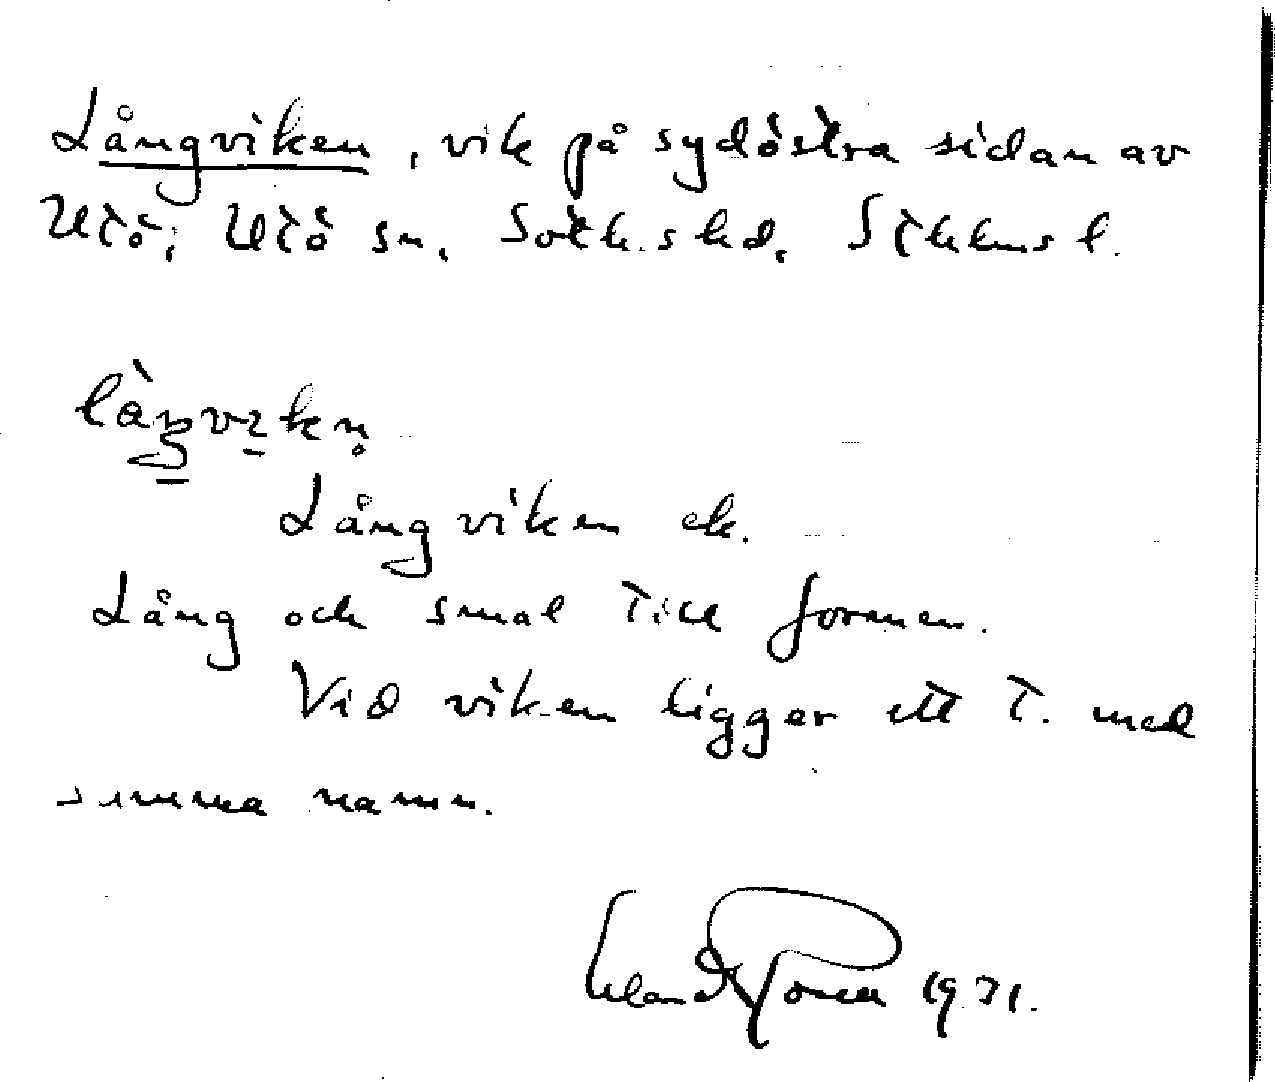 Långviken, vik på sydöstra sidan av
Utö; Utö sn. Soth. skd. Sthlms l.
Långviken ek.
Lång och smal till formen.
Vid viken ligger ett T. med
samma namn.
1931.